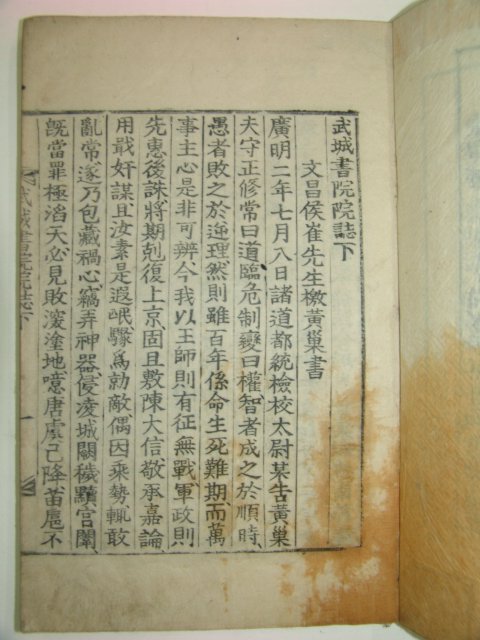 武城書院院誌下
文昌侯崔先生檄黃巢書
廣明二年七月八日諸道都統檢校太尉某告黃巢
夫守正修常曰道臨危制變曰權智者成之於順時
愚者敗之於逆理然則雖百年係命生死難期而萬
事主心是非可辨今我以王師則有征無戰軍政則
先惠後誅將期剋復上京固且敷陳大信敬承嘉諭
用戢奸謀且汝素是遐甿驟爲勍敵偶因乘勢輒敢
亂常遂乃包藏禍心竊弄神器侵凌城闕穢黷宮闈
旣當罪極滔天必見敗深塗地噫唐虞已降苗扈不
武城書院院誌下 一